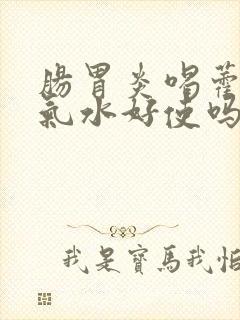 腸胃炎喝藿
氣水好使嗎
我是寶馬我怕